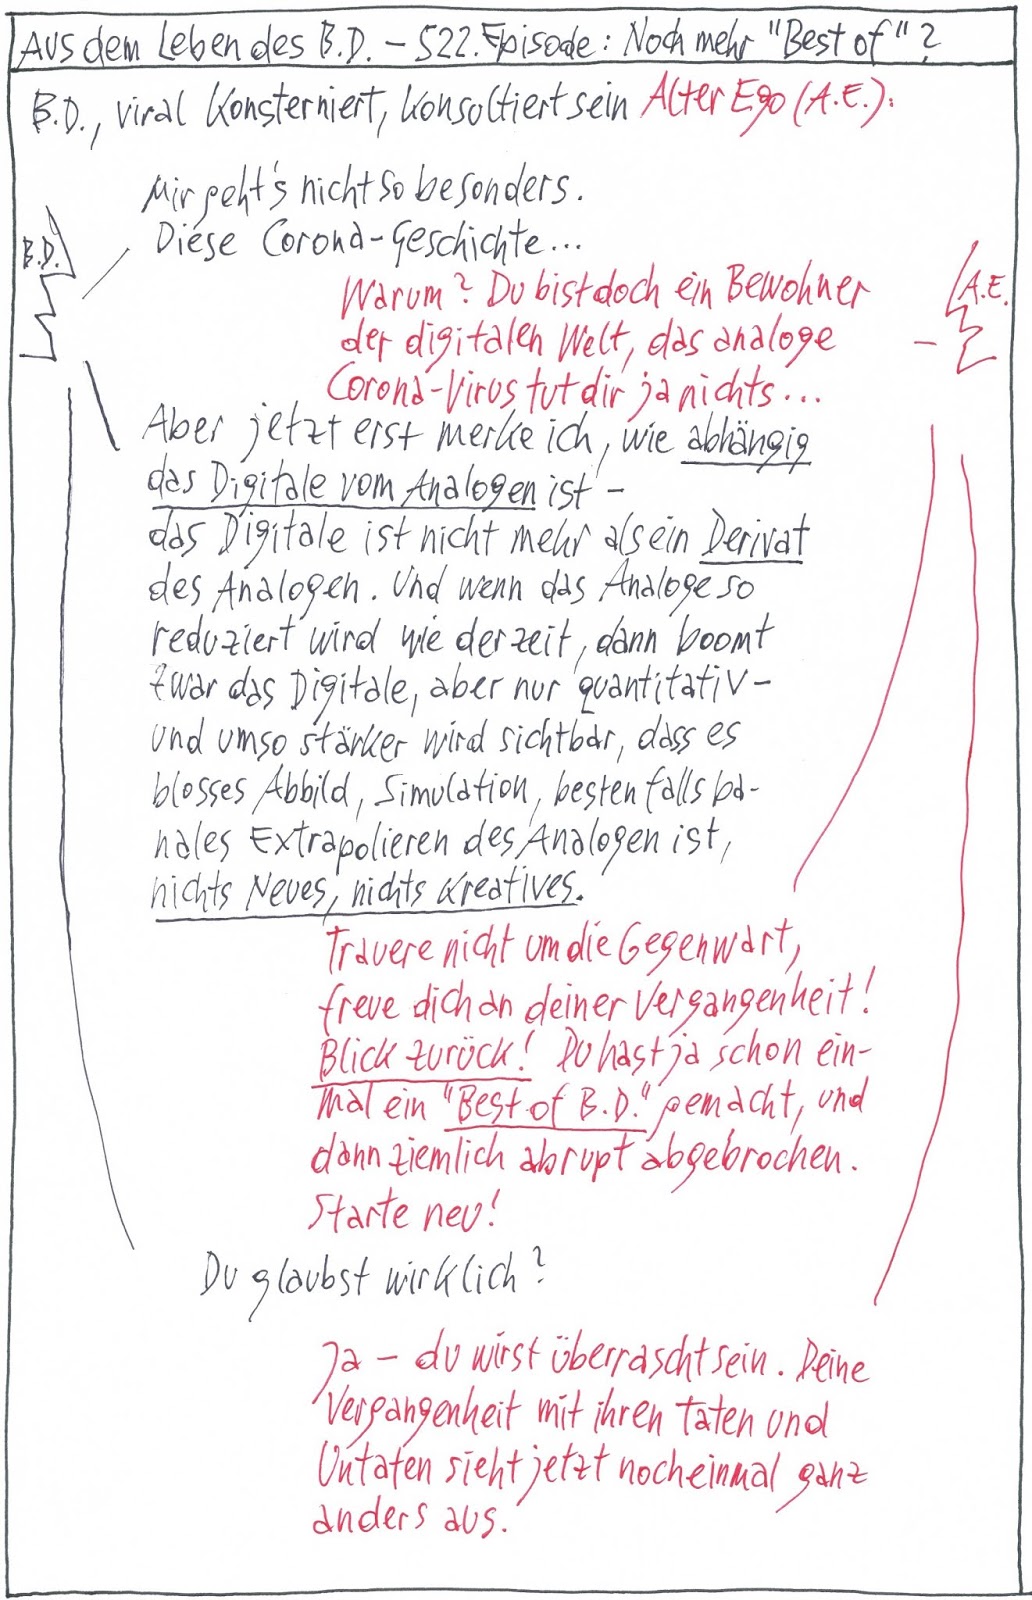 Aus dem Leben des B.D. – 522. Episode: Noch mehr "Best of"?
B.D., viral konsterniert, konsultiert sein Alter Ego (A.E.):
Mir geht's nicht so besonders.
B.D. Diese Corona-Geschichte...
Warum? Du bist doch ein Bewohner A.E.
der digitalen Welt, das analoge
Corona-Virus tut dir ja nichts...
Aber jetzt erst merke ich, wie abhängig
das Digitale vom Analogen ist –
das Digitale ist nicht mehr als ein Derivat
des Analogen. Und wenn das Analoge so
reduziert wird wie derzeit, dann boomt
zwar das Digitale, aber nur quantitativ –
und umso stärker wird sichtbar, dass es
blosses Abbild, Simulation, bestenfalls ba-
nales Extrapolieren des Analogen ist,
nichts Neues, nichts Kreatives.
Trauere nicht um die Gegenwart,
freue dich an deiner Vergangenheit!
Blick zurück! Du hast ja schon ein-
mal ein "Best of B.D." gemacht, und
dann ziemlich abrupt abgebrochen.
Starte neu!
Du glaubst wirklich?
Ja – du wirst überrascht sein. Deine
Vergangenheit mit ihren Taten und
Untaten sieht jetzt nocheinmal ganz
anders aus.